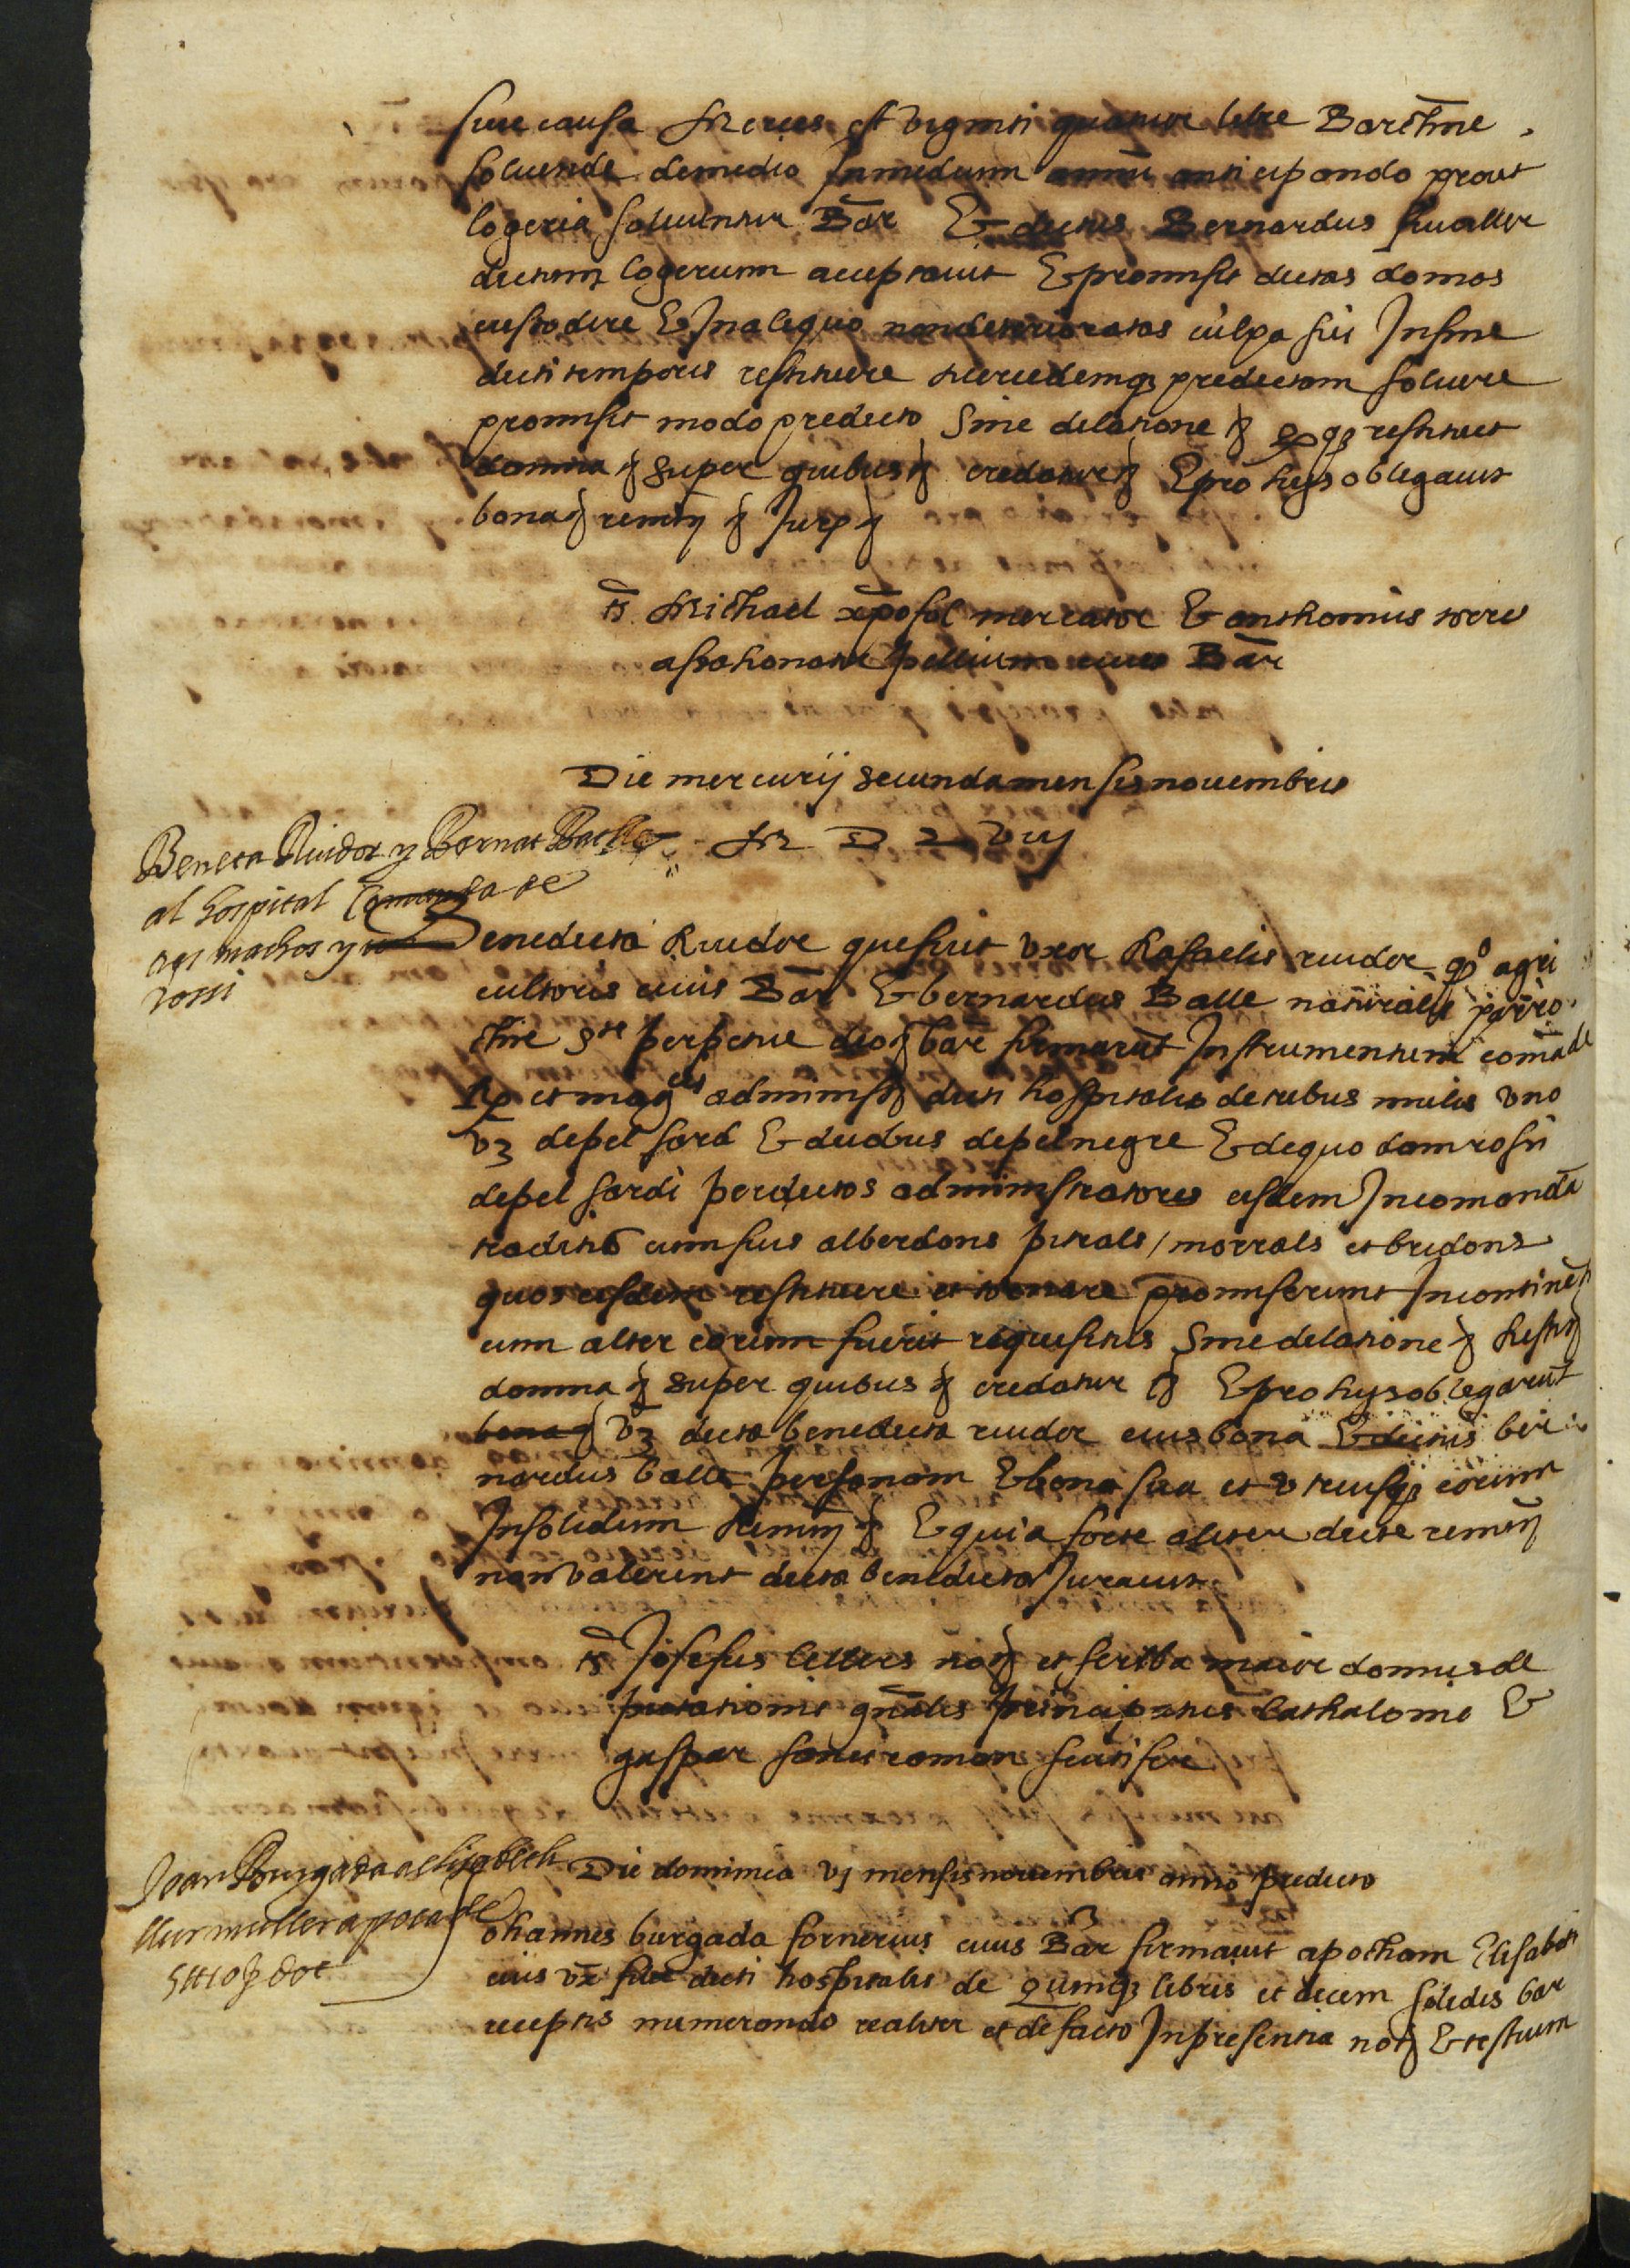 sive causa Merces est viginti quatuor libre Barchine
solvende de medio in medium annum anticipando prout
logeria solvuntur Bar Et dictus Bernardus
dictum logerium acceptavit Et promisit dictas domos
custodire Et in aliquo non deterioratas culpa sui In fine
dicti temporis restituere mercedemqz predictam solvere
promisit modo predicto Sine dilatione restituet
damna super quibus credatur Et pro hys obligavit
bona
ts Michael xpofol mercator Et anthonius
assahonator pellium civis Bar
Die mercurij secunda mensis novembris
M D L viij
Beneta Ruidor y Bernat Batlle
al hospital Comanda de
tres matxos y
rossi
Benedicta Ruidor que fuit uxor Rafaelis ruidor qº agri
cultoris civis Bar Et bernardus Balle naturalis parro
chie Ste perpetue bar firmarunt Instrumentum comade
dicti hospitalis de tribus mulis uno
vz de pel sard Et duobus de pel negre Et de quodam rossi
de pel sardi per dictos administratores eisdem In comanda
tradits cum suis alberdons pitrals / morrals et bridons
quos eisdem restituere et tornare promiserunt Incontinet
cum alter eorum fuerit requisitus Sine dilatione
damna super quibus credatur Et pro hys obligarut
bona vz dicta benedicta ruidor eius bona Et dictus ber
nardus balle personam Et bona sua et utriusqz eorum
Insolidum Et quia forte aliter dicte
non valerent dicta benedicta Juravit
ts Josefus not et scriba maior domus de
putationis gnalis principatus Cathalonie Et
gaspar scutifer
Joan Burgada a Elisabeth
muller apoca de
5 ll 10 s
Die dominica vj mensis novembris anno predicto
Johannes burgada fornerius civis Bar firmavit apocham Elisabeti
eius ux filie dicti hospitalis de quinqz libris et decem solidis bar
receptis numerando realiter et de facto In presentia not Et testium